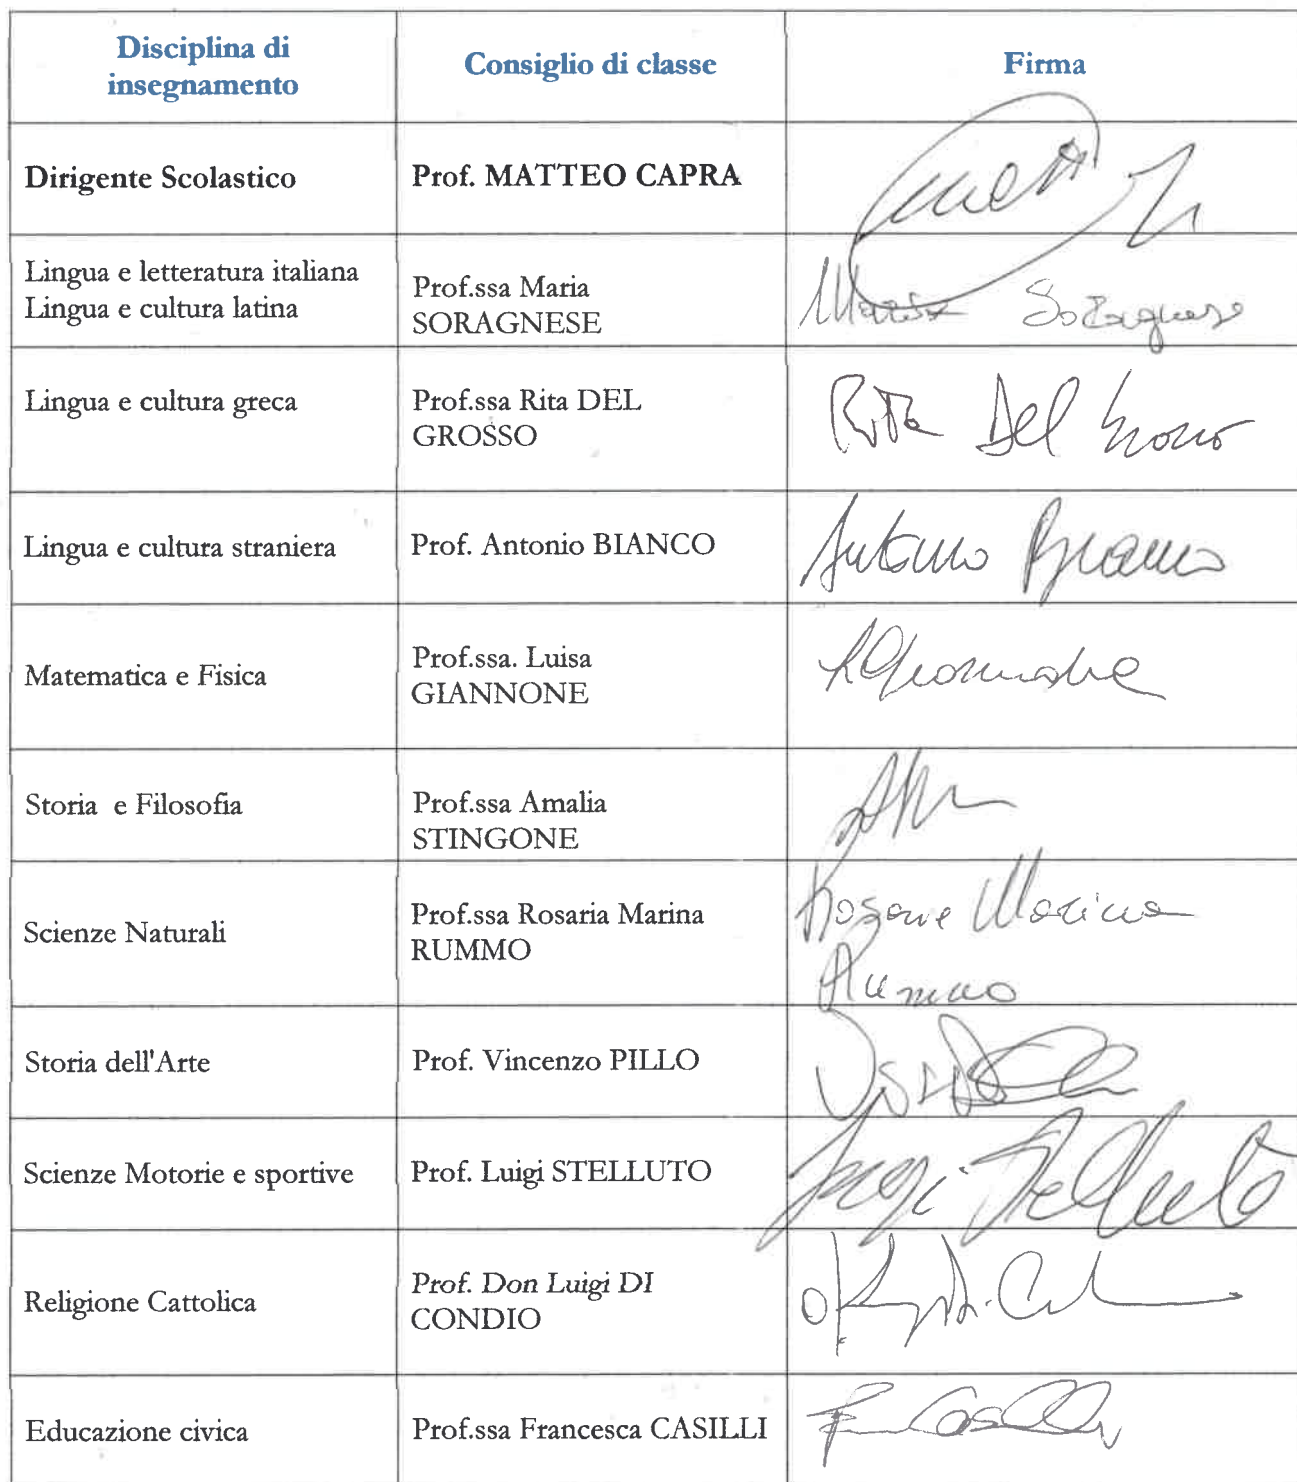 Disciplina di
insegnamento
Consiglio di classe
Firma
Dirigente Scolastico
Prof. MATTEO CAPRA
Lingua e letteratura italiana
Lingua e cultura latina
Prof.ssa Maria
SORAGNESE
Maria Soragnese
Lingua e cultura greca
Prof.ssa Rita DEL
GROSSO
Rita Del Grosso
Lingua e cultura straniera
Prof. Antonio BIANCO
Antonio Bianco
Matematica e Fisica
Prof.ssa. Luisa
GIANNONE
LGiannone
Storia  e Filosofia
Prof.ssa Amalia
STINGONE
Scienze Naturali
Prof.ssa Rosaria Marina
RUMMO
Rosaria Marina
Rummo
Storia dell'Arte
Prof. Vincenzo PILLO
Scienze Motorie e sportive
Prof. Luigi STELLUTO
Luigi Stelluto
Religione Cattolica
Prof. Don Luigi DI
CONDIO
Educazione civica
Prof.ssa Francesca CASILLI
F Casilli